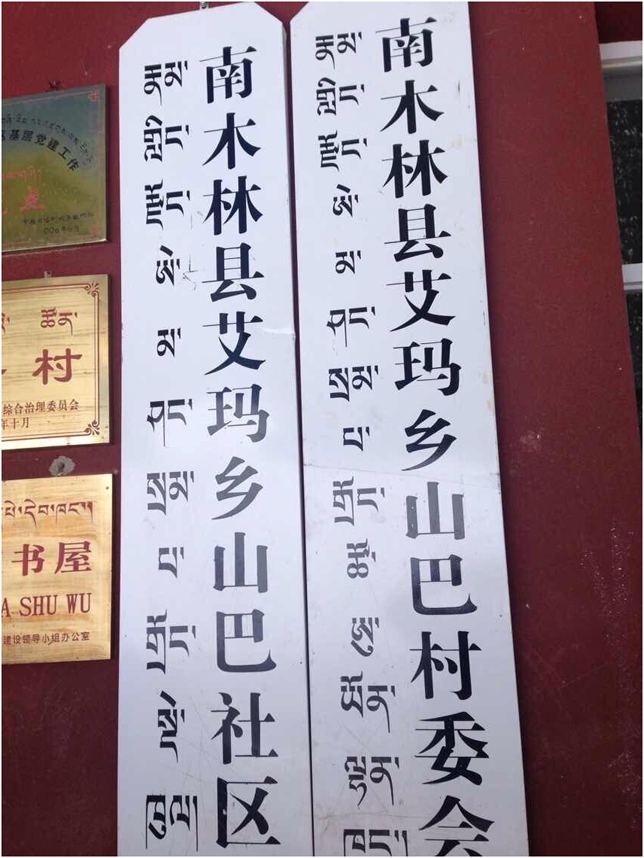 基层党建工作
点
村
综合治理委员会
年十月
书屋
A SHU WU
建设领导小组办公室
རྣམ་གླིང་རྫོང་ཨེ་མ་ཤང་སྲམ་པ་གྲོང་སྡེ་ཁུལ
南木林县艾玛乡山巴社区
རྣམ་གླིང་རྫོང་ཨེ་མ་ཤང་སྲམ་པ་གྲོང་ཚོའུ་ཡོན་ལྷན་ཁང
南木林县艾玛乡山巴村委会